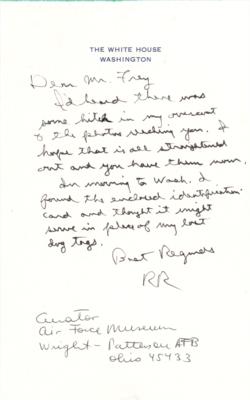 THE WHITE HOUSE
WASHINGTON
Dear Mr. Frey
I'd heard there was
some hitch in my
of the photos reaching you. I
hope that is all straightened
out and you have them now.
In moving to Wash. I
found the enclosed identification
card and thought it might
serve in place of my lost
dog tags.
Best Regards
RR
Curator
Air Force Museum
Wright-Patterson AFB
Ohio 45433